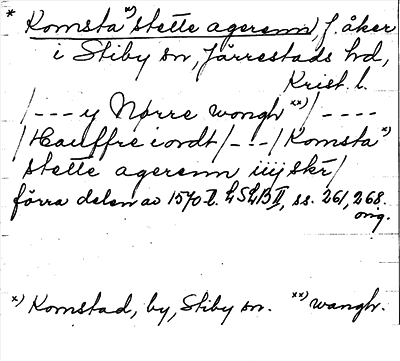 * Komsta x) stette agerenn, f. åker
i Stiby sn, Järrestads hd,
Krist. l.
/--- y Nørre wongh xx)/----
/Hauffre iordt/---/Komsta x)
stette agerenn iiij skr/
förra delen av 1570-t. LSLB II, ss. 261, 268.
orig.
x) Komstad, by, Stiby sn. xx) wangh.